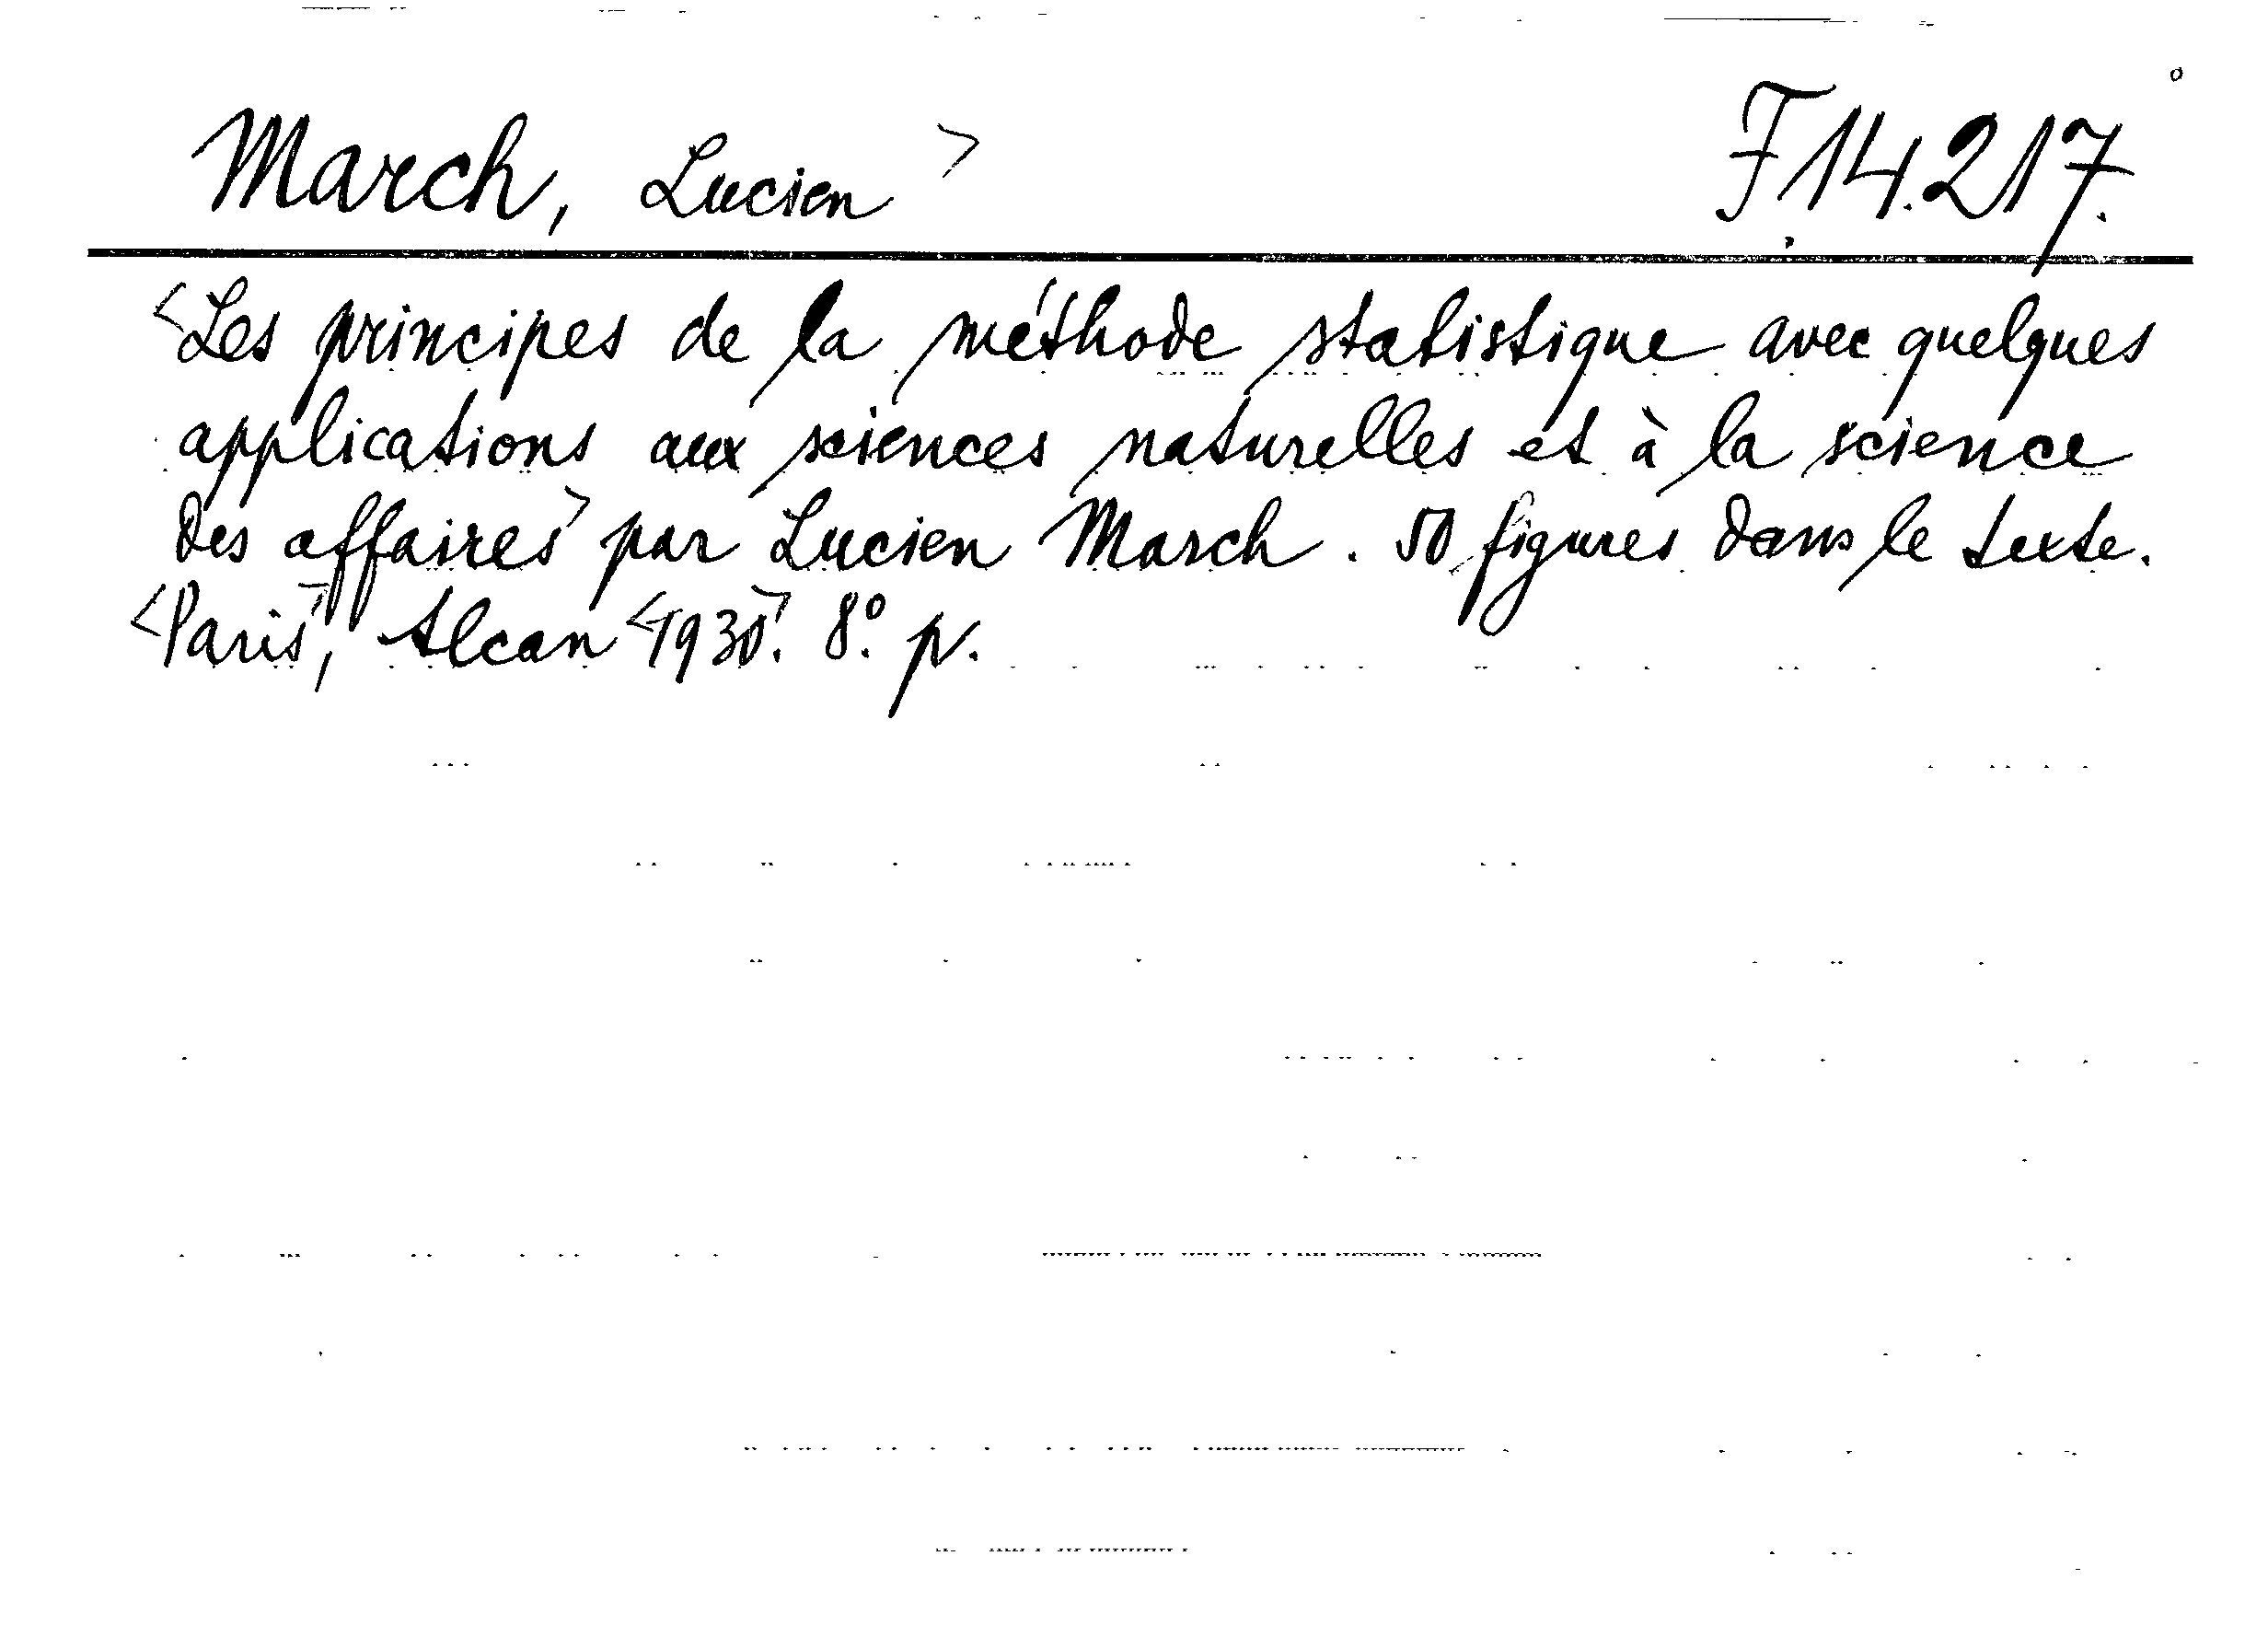 March, Lucien > F 14.217.
<Les principes de la méthode statistique avec quelques
applications aux sciences naturelles et à la science
des affaires> par Lucien March. 50 figures dans le texte.
<Paris>, Alcan <1930>. 8°. p.